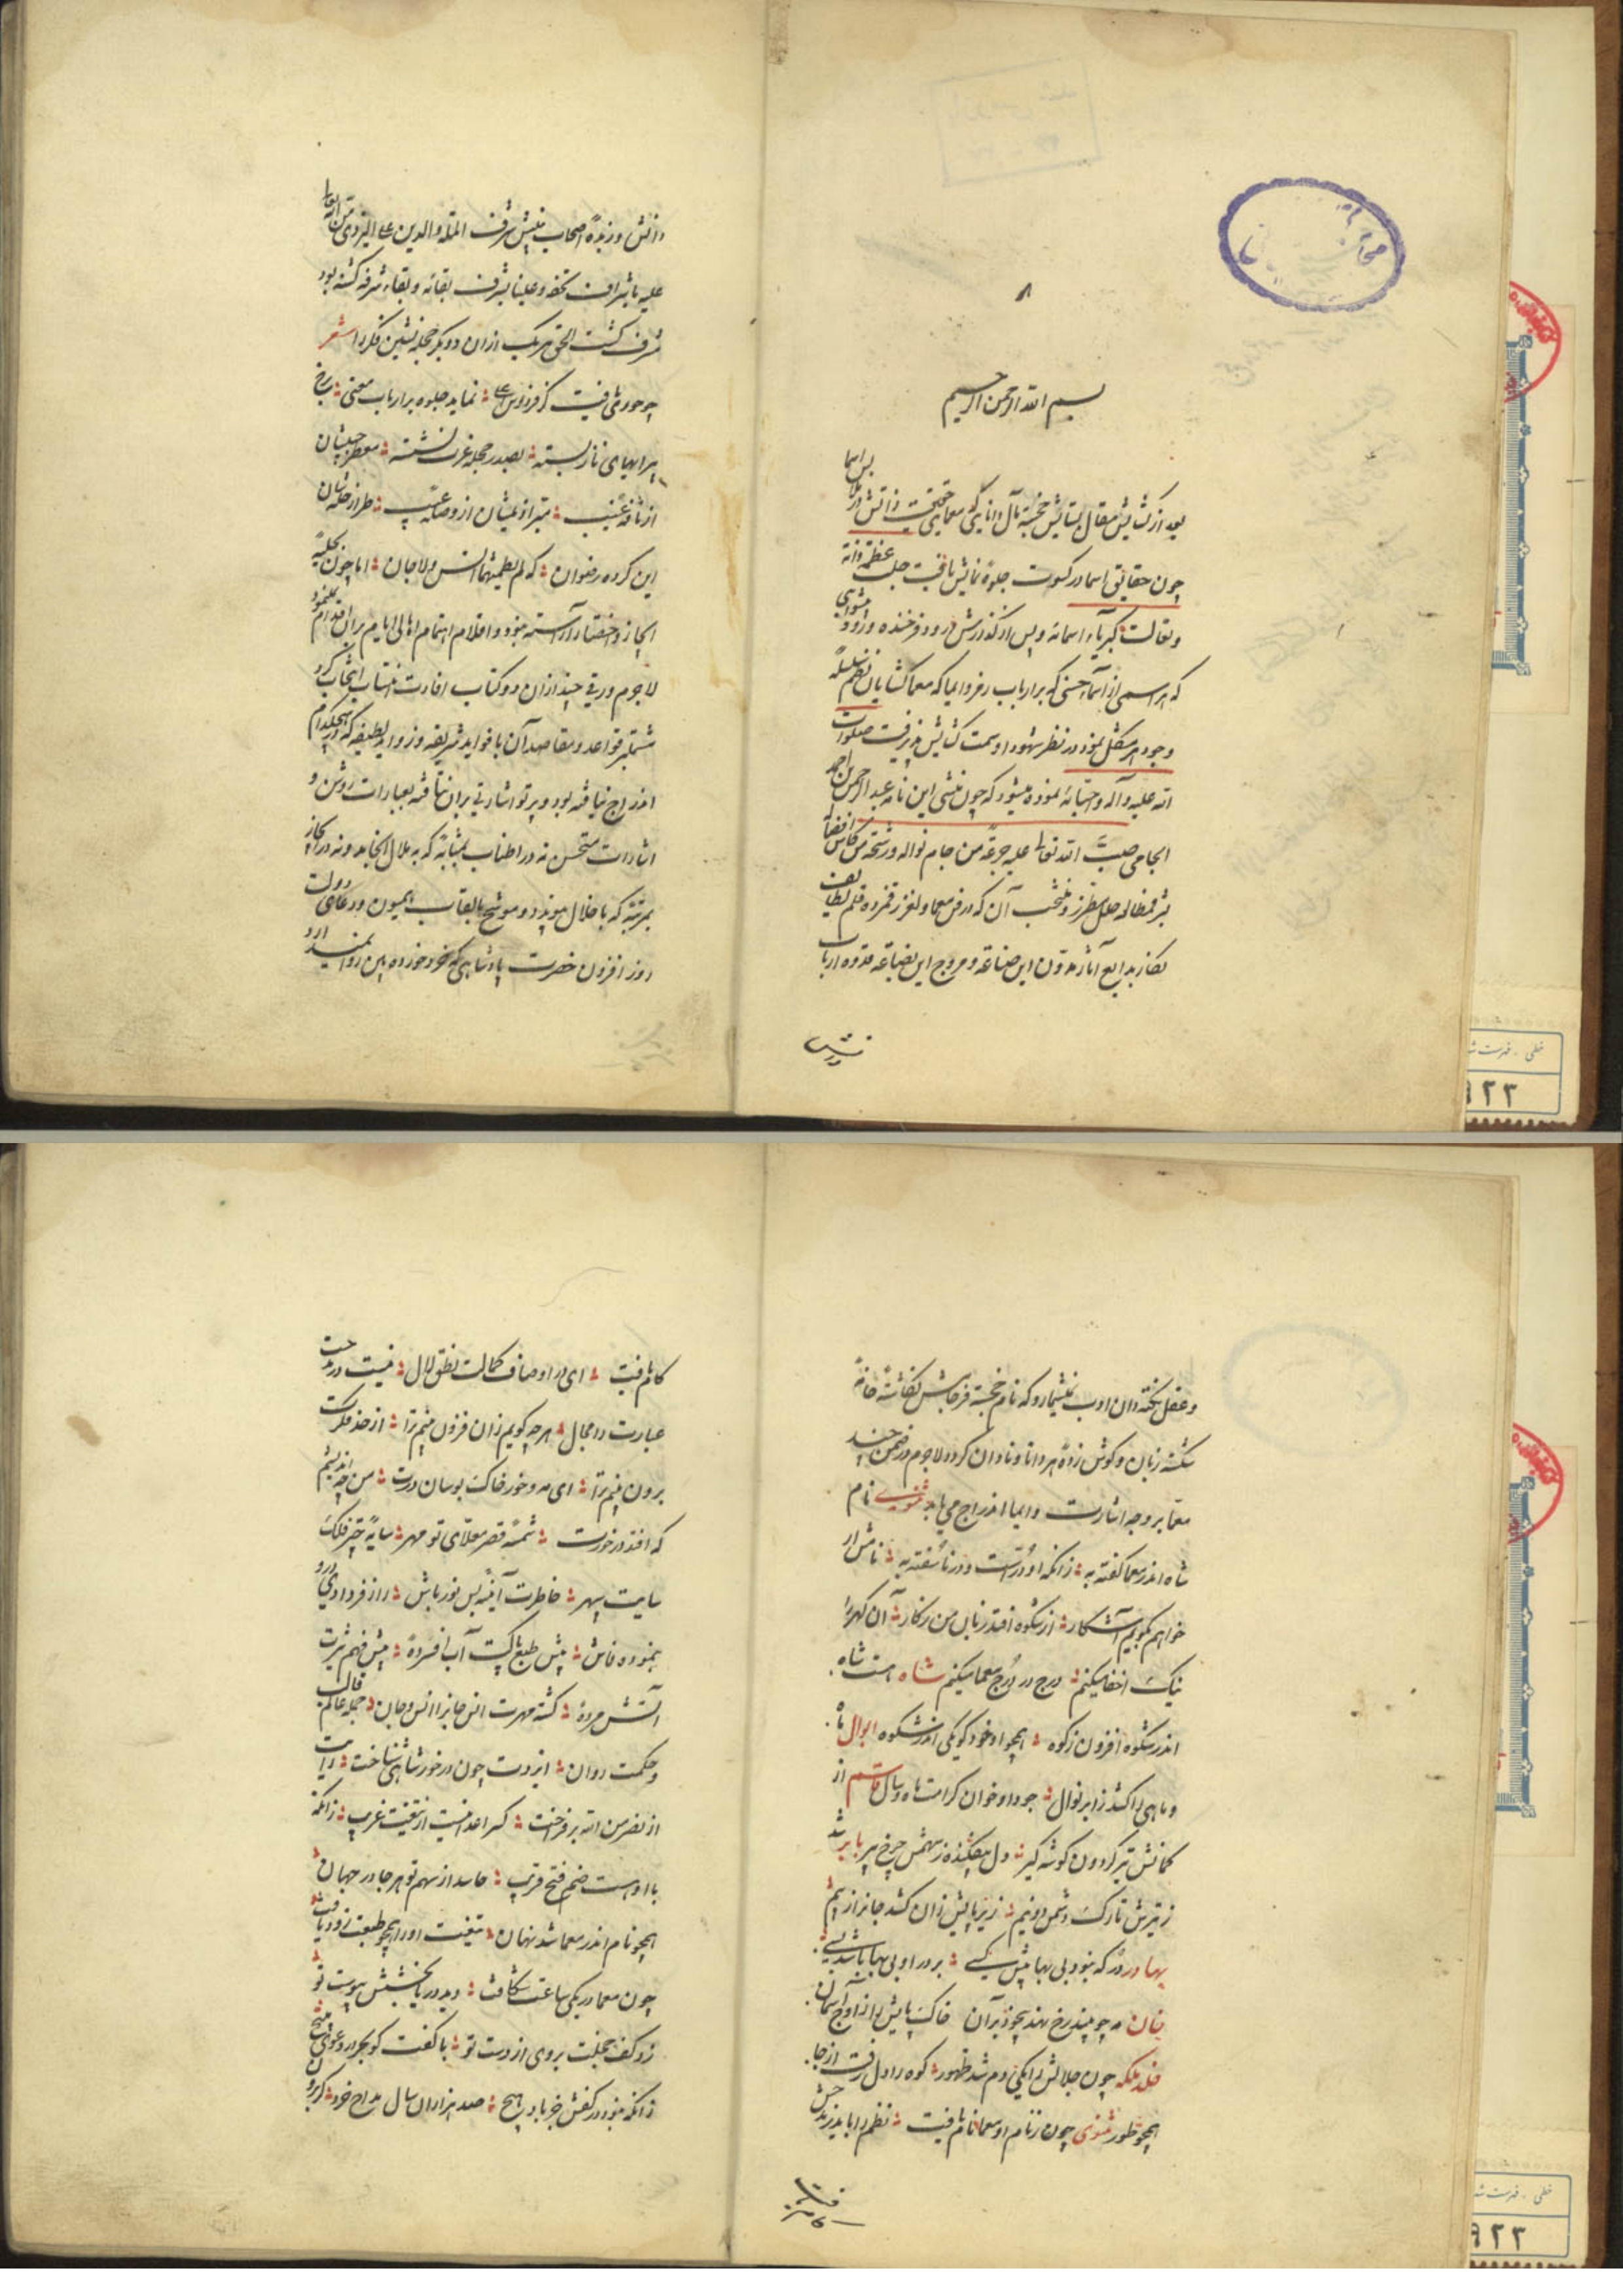 بسم الله الرحمن الرحیم
بعد از گشایش مقال بستایش خجسته مآل دانایی که معمای حقیقت ذاتش در ملابس اسما
چون حقایق اسما در کسوت جلوه نمایش یافت جلت عظمة ذاته
وتعالت کبریاء اسمائه و پس از گذارش درود فرخنده ورود
که هر اسمی از اسماء حسنی که بر ارباب رمز و ایما که معما گشایان نظم سلسله
وجود هر مشکل نمود در نظر شهود او سمت گشایش پذیرفت صلوات
الله علیه وآله واحبائه نموده میشود که چون منشی این نامه عبد الرحمن بن احمد
الجامی صب الله تعالی علیه جرعة من جام نواله ورشحة من کاس افضاله
بشرف مطالعه حلل مطرز ومنتخب آن که در فن معما ولغز رقمزده قلم لطایف
نگار بدایع آثار مدون این صناعة ومروج این بضاعة قدوه ارباب
دانش
دانش وزبدهٔ اصحاب بینش شرف الملة والدین علی الیزدی
علیه
مشرف گشت الحق هر یک از ان دو بکر حجله نشین فکر را شعر
چو حوری یافت کز فردوس اعلی نماید جلوه بر ارباب معنی
پیرایهای ناز بسته بصدر حجله عزت نشسته معطر جیبشان
از نافه غیب مبرا ذیلشان از وصمة عیب طراز حله شان
این کرده رضوان که لم یطمثهما انس ولا جان اما چون بحلیهٔ
ایجاز واختصار آراسته نبود واقلام اهتمام اهالی ایام بران اقدام نمی نمود
لاجرم ورقی چند از ان دو کتاب افادت انتساب انتخاب کرد
مشتمل بر قواعد ومقاصد آن با فواید شریفه وزواید لطیفه که در هیچکدام
اندراج نیافته بود وپرتو اشارتی بران نتافته بعبارات روشن و
اشارات مستحسن نه در اطناب بمثابهٔ که به ملال انجامد ونه در ایجاز
بمرتبهٔ که باخلال پیوندد وموشح بالقاب همیون ودعای دولت
روز افزون حضرت پادشاهی که خرد خرده بین روا نمیدارد
وعقل نکته دان ادب نمیشمارد که نام خجسته فرجامش نگاشتهٔ خامهٔ
شکسته زبان وگوش زدهٔ هر دانا ونادان گردد لاجرم در ضمن چند
معما بر وجه اشارت وایما اندراج می یابد مثنوی نام
شاه اندر معما گفته به زانکه او درست ودر ناسفته به نامش ار
خواهم که گویم آشکار از شکوه افتد زبان من ز کار آن گهر را
نیک اخفا میکنم درج در درج معما میکنم شاه هست شاه
اندر شکوه افزون ز کوه همچو او خود کو یکی اندر شکوه ابوال ماه
وماهی را کشد زابر نوال جود او خوان کرامت ماه وسال قاسم از
کمانش تیر گردون گوشه گیر دل بیفکنده ز سهمش چرخ پیر بابر شد
ز تیرش تارک دشمن دو نیم زیر پایش زان کشد جانرا ز بیم
بهادر در که نبود بی بها پیش کسی بر در او بی بها باشد بسی
خان مه چو بیند رخ نهد بیخود بران خاک پایش را از اوج اسمان
خلد ملکه چون جلالش را یکی دم شد ظهور کوه را دل رفت از جا
همچو طور مثنوی چون ز نام او معما نام یافت نظم را باید ز مدحش
کام یافت
کام یافت ای در اوصاف کمالت نطق لال نیست در مدحت
عبارت را مجال هر چه گویم زان فزون بینم ترا از حد فکرت
برون بینم ترا ای مه وخور خاک بوسان درت من چه اندیشم
که افتد در خورت شمسهٔ قصر معلای تو مهر سایهٔ چتر فلک
سایت سپهر خاطرت آیینهٔ بس نور پاش راز فردا دروی
بنموده فاش پیش طبع پاکت آب افسردهٔ پیش فهم تیزت
آتش مردهٔ گشته مهرت انس جانرا انس وجان جمله عالم قالب
وحکمت روان ایزدت چون در خور شاهی شناخت رایت
از نصر من الله بر فراخت کس اعدا نیست از تیغت غریب زانکه
با اوست ضم فتح قریب حاسد از سهم تو هر جا در جهان
همچو نام اندر معما شد نهان تیغت اورا همچو طبعت زود یافت
چون معما در یکی ساعت شکافت دید دریا بخشش پیوست تو
زد کف خجلت بروی از دست تو با کفت گو بحر در دعوی مپیچ
زانکه نبود در کفش جز باد هیچ صد هزاران سال مداح خرد گر برون